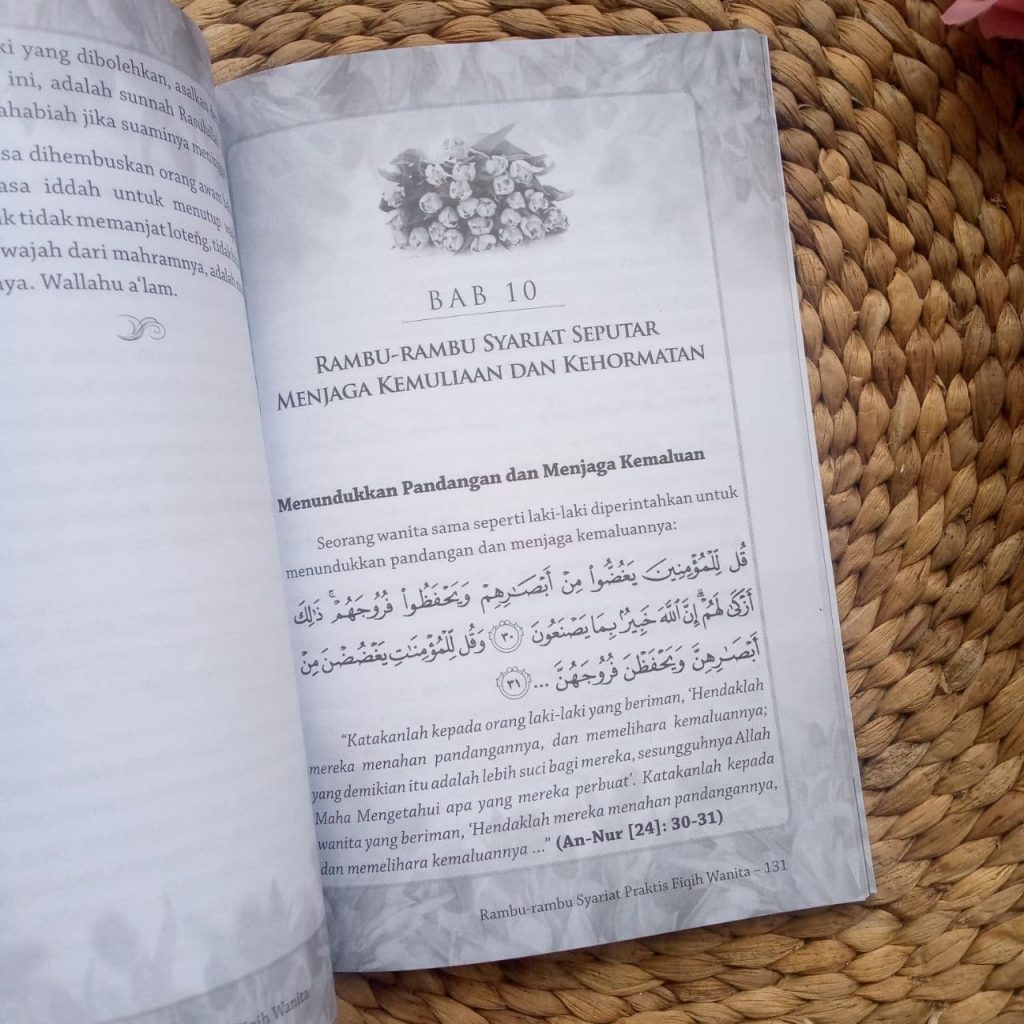 ki yang dibolehkan, asalkan
ini, adalah sunnah
ahabiah jika suaminya
sa dihembuskan orang awam
asa iddah untuk menutup
k tidak memanjat loteng,
wajah dari mahramnya,
nya. Wallahu a‘lam.
Wanita
BAB 10
RAMBU-RAMBU SYARIAT SEPUTAR
MENJAGA KEMULIAAN DAN KEHORMATAN
Menundukkan Pandangan dan Menjaga Kemaluan
Seorang wanita sama seperti laki-laki diperintahkan untuk
menundukkan pandangan dan menjaga kemaluannya:
قُل لِّلْمُؤْمِنِينَ يَغُضُّوا۟ مِنْ أَبْصَٰرِهِمْ وَيَحْفَظُوا۟ فُرُوجَهُمْ ۚ ذَٰلِكَ
أَزْكَىٰ لَهُمْ ۗ إِنَّ ٱللَّهَ خَبِيرٌۢ بِمَا يَصْنَعُونَ ٣٠ وَقُل لِّلْمُؤْمِنَٰتِ يَغْضُضْنَ مِنْ
أَبْصَٰرِهِنَّ وَيَحْفَظْنَ فُرُوجَهُنَّ ... ٣١
“Katakanlah kepada orang laki-laki yang beriman, ‘Hendaklah
mereka menahan pandangannya, dan memelihara kemaluannya;
yang demikian itu adalah lebih suci bagi mereka, sesungguhnya Allah
Maha Mengetahui apa yang mereka perbuat’. Katakanlah kepada
wanita yang beriman, ‘Hendaklah mereka menahan pandangannya,
dan memelihara kemaluannya ...” (An-Nur [24]: 30-31)
Rambu-rambu Syariat Praktis Fiqih Wanita – 131